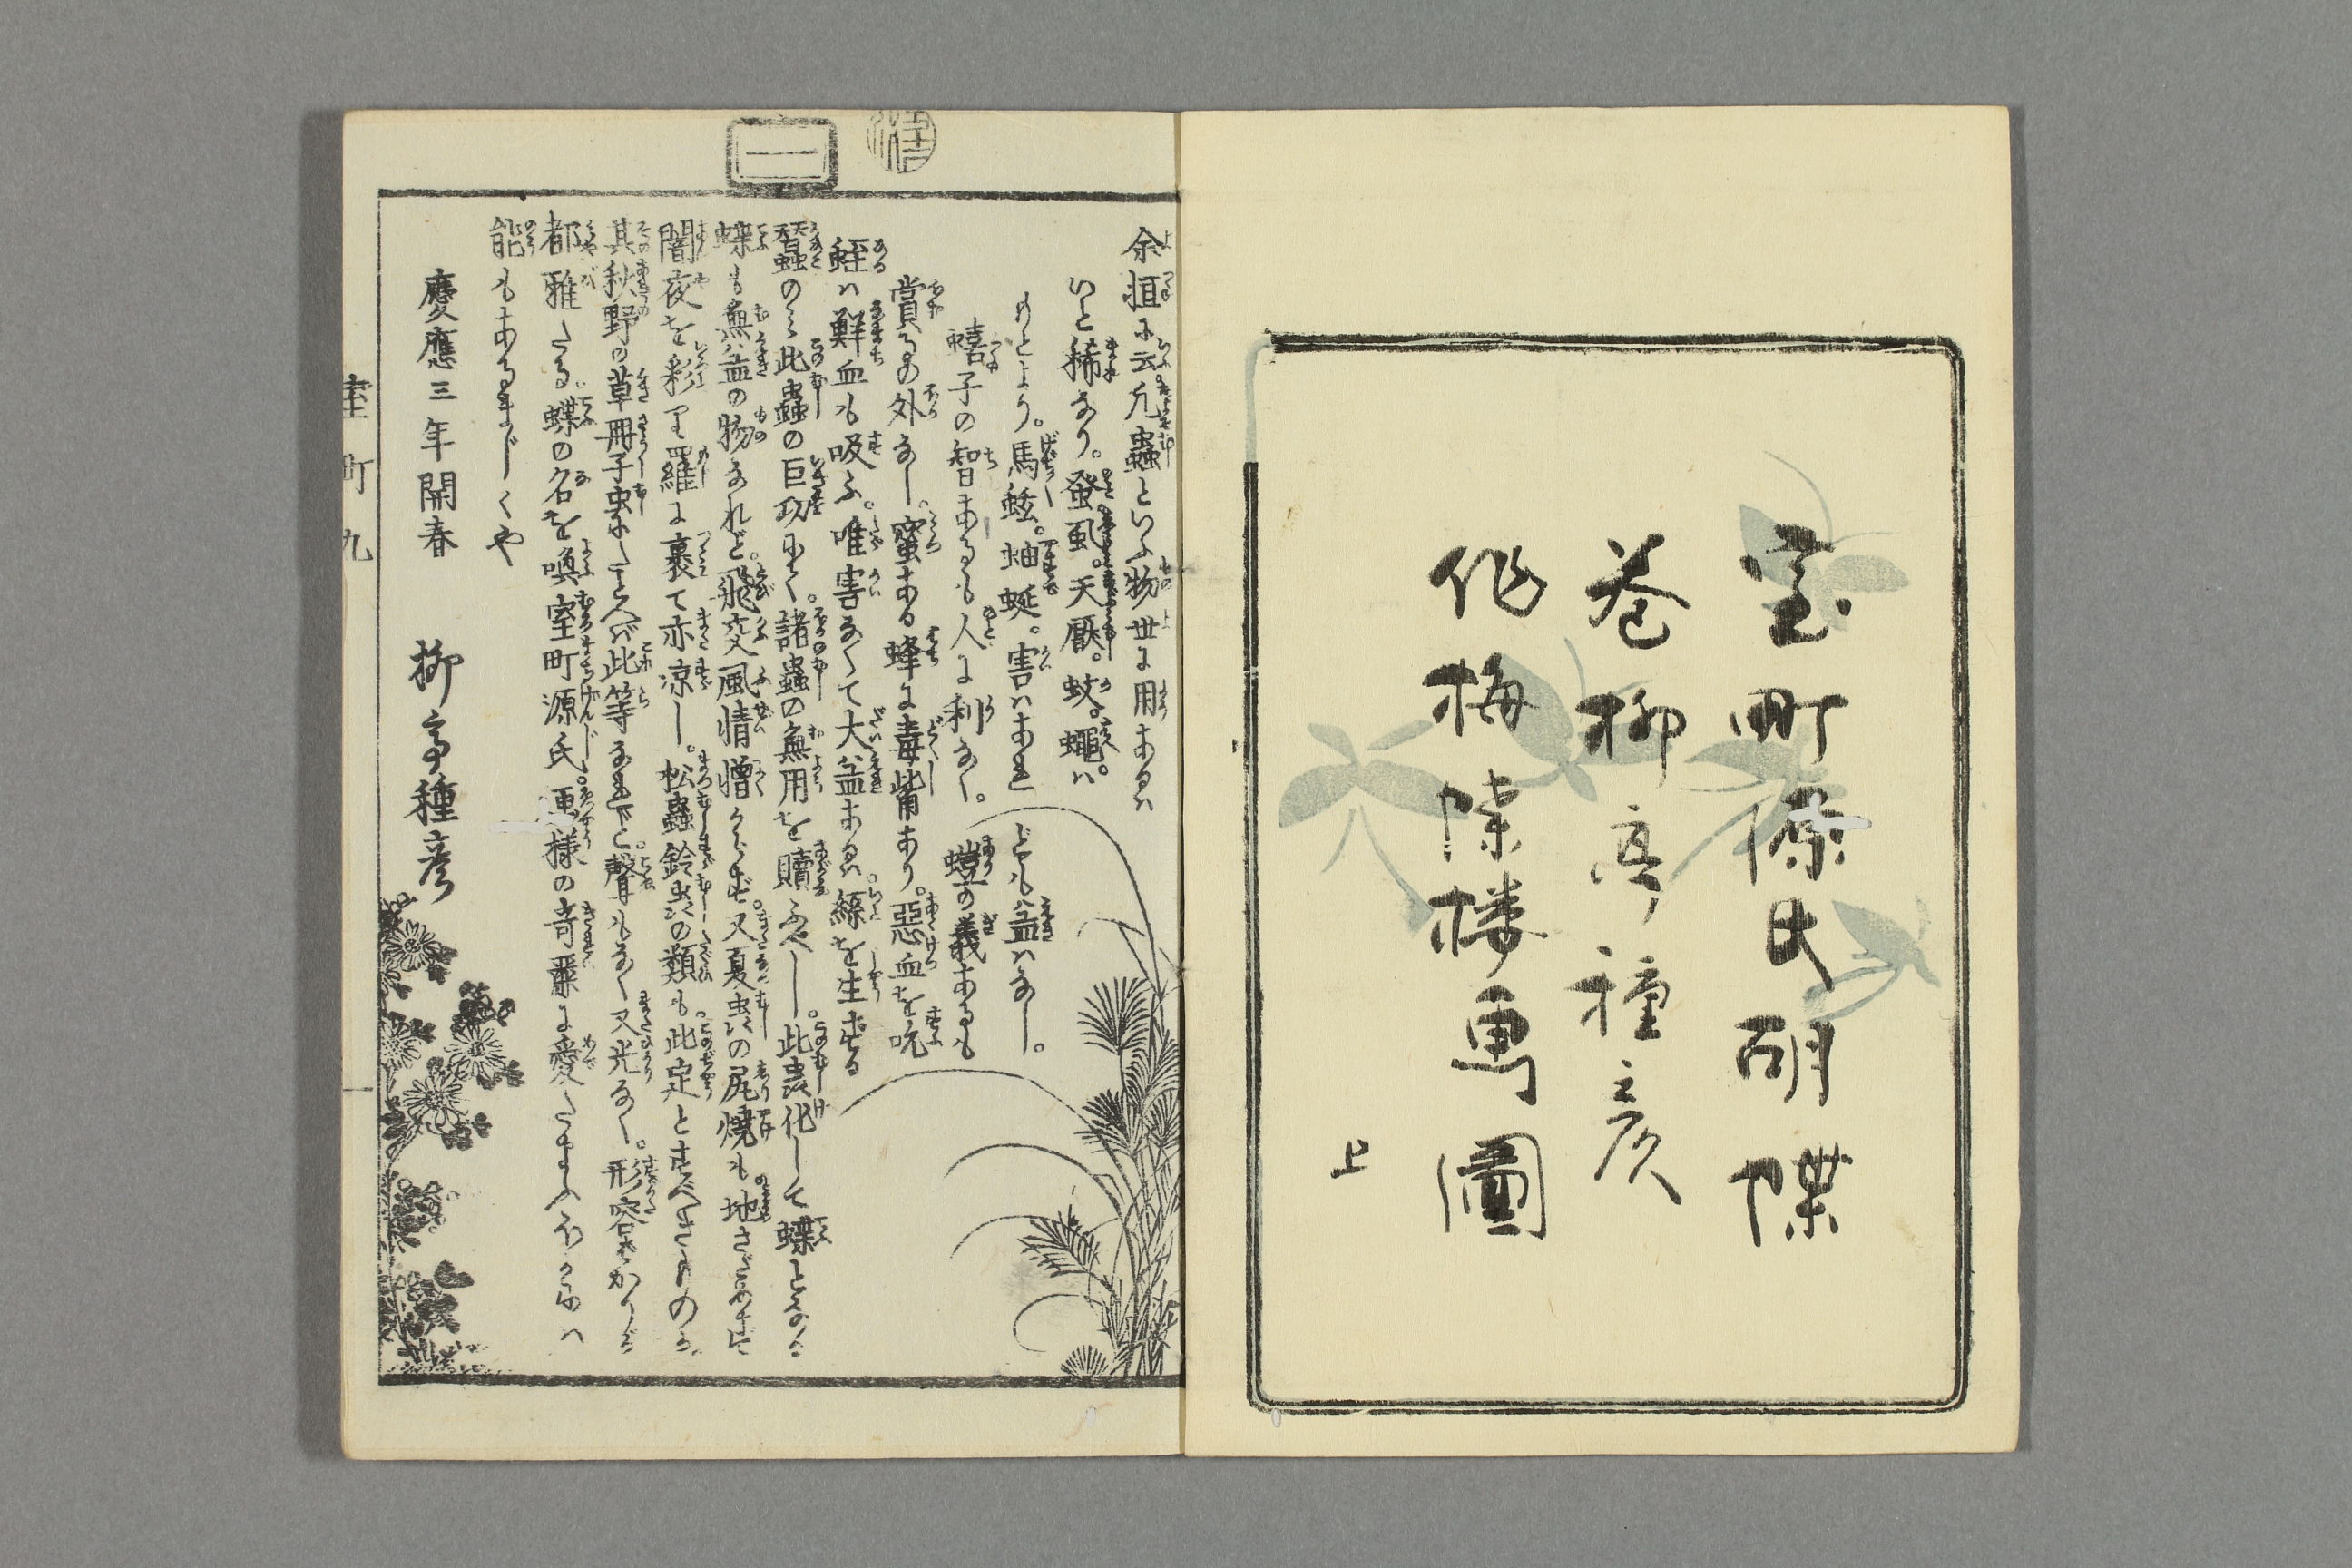 室町源氏胡蝶
巻柳亭種彦
作梅蝶楼画圖
上
余恒に云凡蟲といふ物世に用あるハ
いと稀なり。發虱。天厭。蚊。蠅。ハ
もとより。馬蚿。蚰蜒。害ハあれども益ハなし。
蟢子の智あるも人に利なく。螘の義あるも
賞るの外なし。蜜ある蜂に毒觜あり。惡血を吮
蛭ハ鮮血も吸ふ。唯害なくて大益あるハ絲を生ずる
蠶のミ此蟲の巨功にて。諸蟲の無用を贖ふべし。此蟲化して蝶となる
蝶も無益の物なれど。飛交風情憎からず。又夏虫の尻燒も。地さだめず
闇夜を彩り羅に裹て亦凉し。松蟲鈴虫の類も。此定とすべきものか。
其秋野の草冊子虫にたとへば此等なれど。聲もなく又光なく。形容ばかりが
都雅たる。蝶の名を喚室町源氏。更様の奇麗に愛たまふ
能もあるまじくや
慶應三年開春
柳亭種彦
室町 九
一